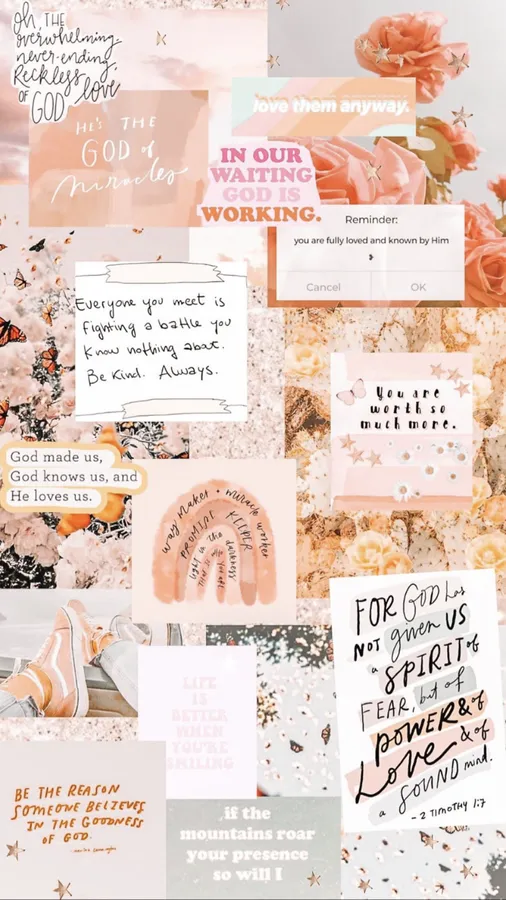 Oh, THE
overwhelming
never-ending,
Reckless
OF GOD love
HE'S THE
GOD of
miracles
love them anyway.
IN OUR
WAITING
GOD IS
WORKING.
Reminder:
you are fully loved and known by Him
Cancel
OK
Everyone you meet is
fighting a battle you
know nothing about.
Be Kind. Always.
You are
worth so
much more.
God made us,
God knows us, and
He loves us.
way maker • miracle worker
PROMISE KEEPER
light in the darkness
that is who you are
FOR GOD has
NOT given US
a SPIRIT of
FEAR, but of
POWER & of
LOVE & of
a SOUND mind.
- 2 TIMOTHY 1:7
LIFE
IS
BETTER
WHEN
YOU'RE
SMILING
BE THE REASON
SOMEONE BELIEVES
IN THE GOODNESS
OF GOD.
if the
mountains roar
your presence
so will I